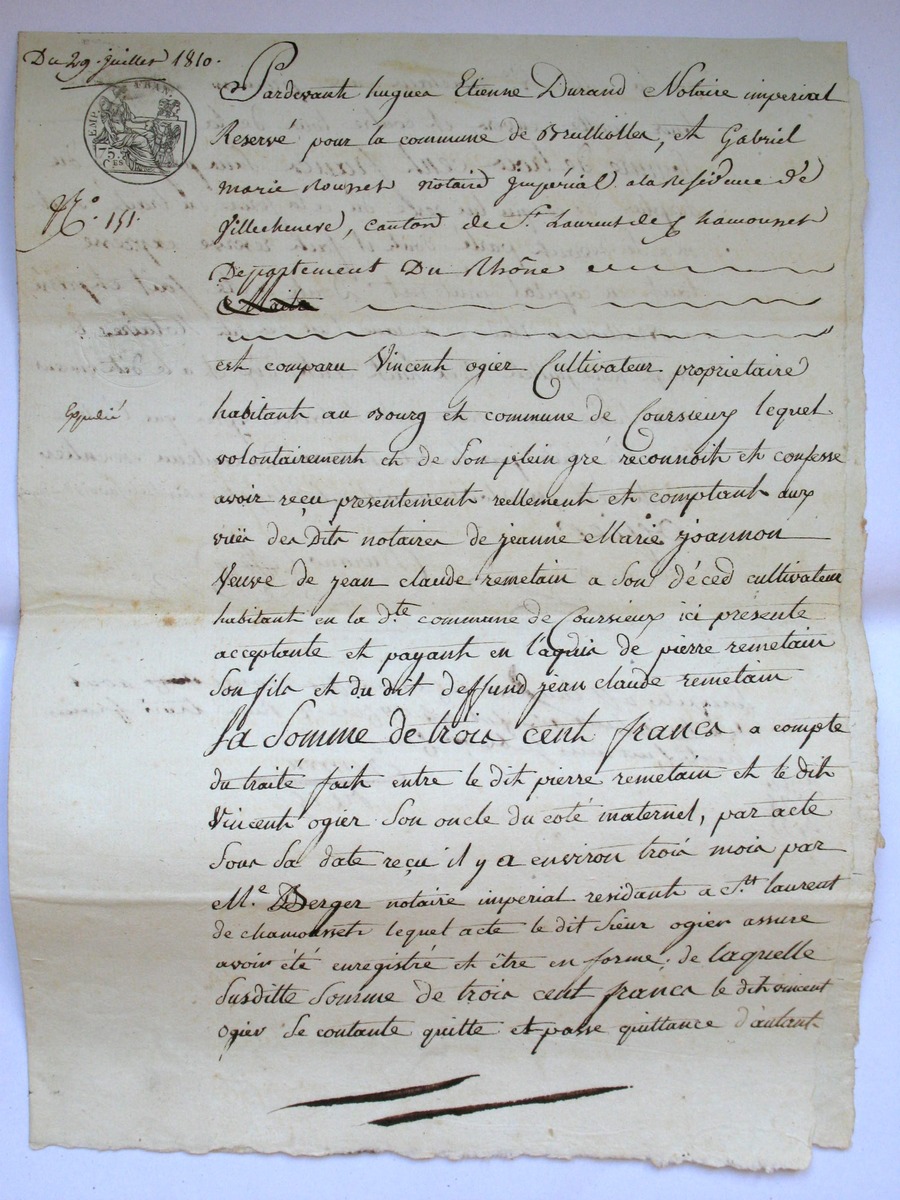 Du 29 juillet 1810.
EMP. FRAN.
75
Ces
N.° 151.
Expedié
Pardevant hugues Etienne Durand Notaire imperial
Reservé pour la commune de Brulliolles, et Gabriel
marie Rousset notaire Impérial a la Residence de
Villecheneve, canton de St. Laurent de Chamousset
Département Du Rhône
est comparu Vincent ogier Cultivateur proprietaire
habitant au Bourg et commune de Coursieux lequel
volontairement et de Son plein gré reconnoit et confesse
avoir reçu presentement reellement et comptant aux
vuës des Dits notaires de jeanne Marie joannon
Veuve de jean claude remetain a Son déced cultivateur
habitant en la d.te commune de Coursieux ici presente
acceptante et payant en l'aquis de pierre remetain
Son fils et du dit deffund jean claude remetain
La Somme de trois cent francs a compte
du traité fait entre le dit pierre remetain et le dit
Vincent ogier Son oncle du coté maternel, par acte
Sous Sa date reçu il y a environ trois mois par
Me. Berger notaire imperial residant a St. laurent
de chamousset lequel acte le dit Sieur ogier assure
avoir été enregistré et être en forme; de laquelle
Susditte Somme de trois cent francs le dit vincent
Ogier Se contante quitte et passe quittance d'autant